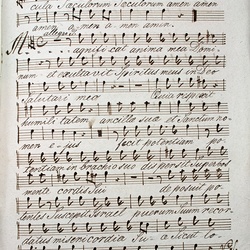 cula Saeculorum Saeculorum amen amen
amen a men a men amen.
allegro
agnificat anima mea Domi
num et exultavit Spiritus meus in Deo
Salutari meo Quia respexit
humilitatem ancillae suae et Sanctum no
men e-jus fecit potentiam po
tentiam in brachio suo dispersit Superbos
mente cordis Sui deposuit po
tentes Suscepit Israel puerum Suum recor
datus misericordiae Suae Sicut lo